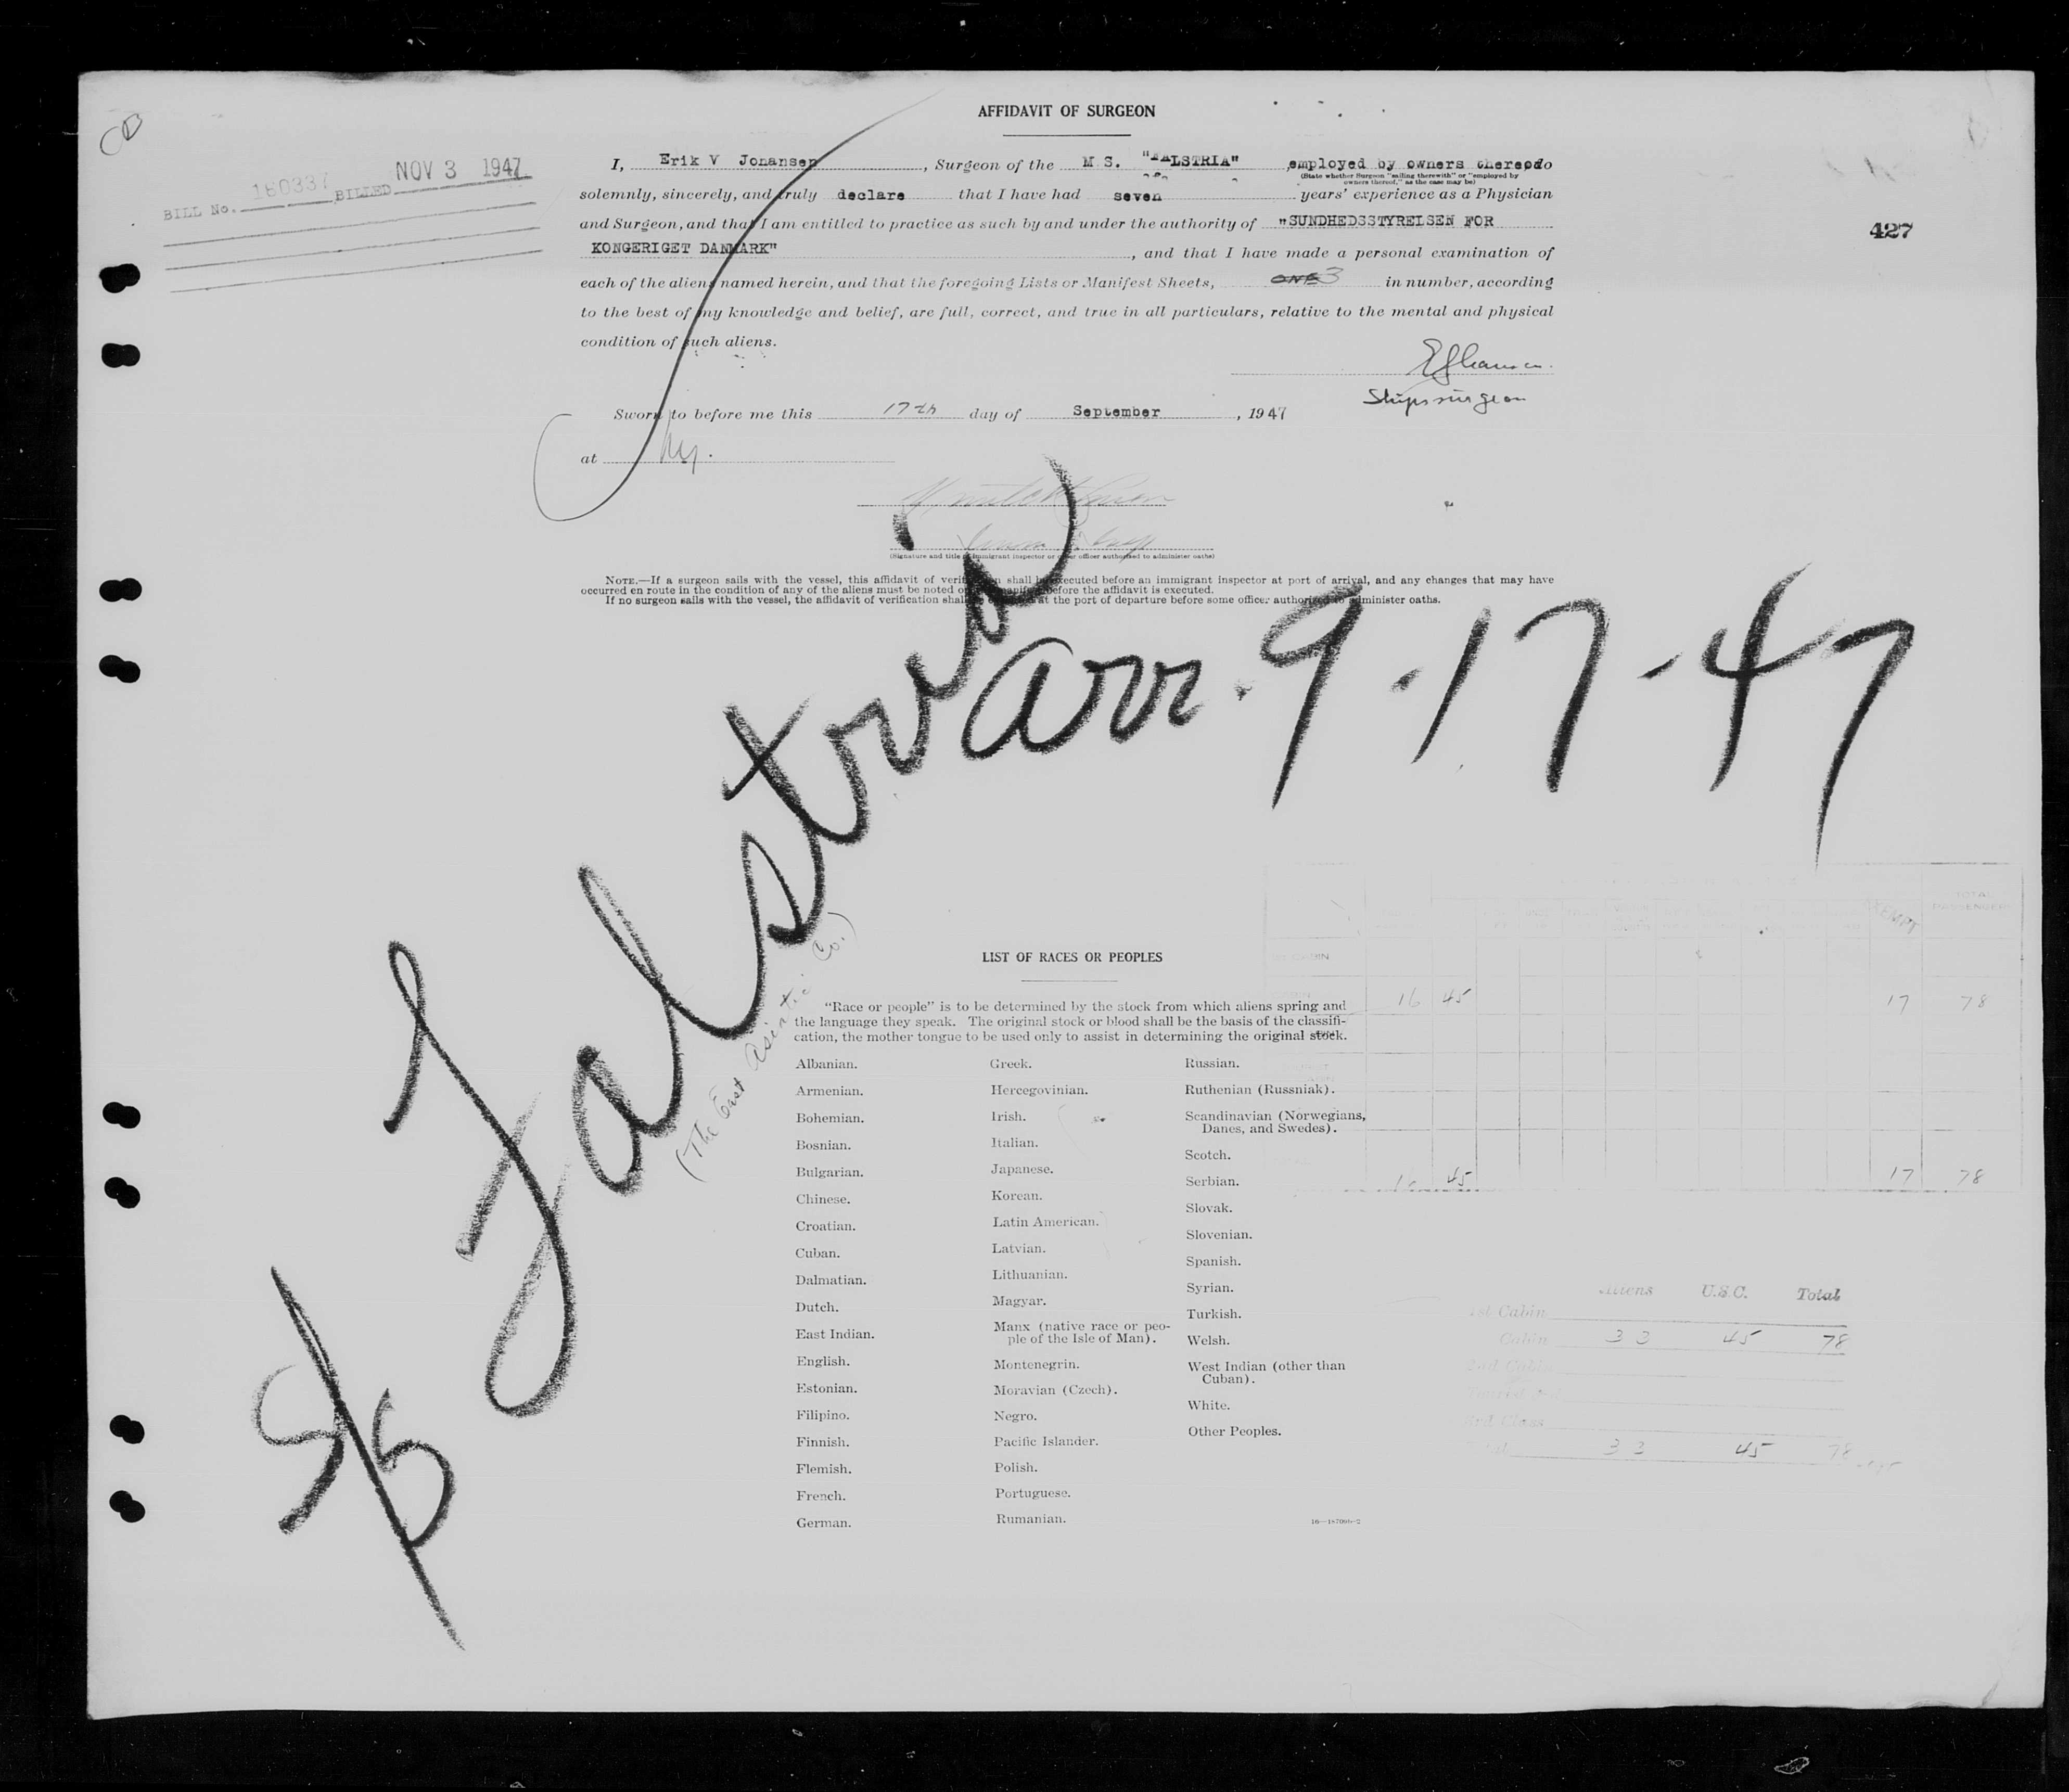 AFFIDAVIT OF SURGEON
BILL No. 180337 BILLED NOV 3 1947
427
I, Erik V Johansen, Surgeon of the M.S. "FALSTRIA", employed by owners thereof do
(State whether Surgeon "sailing therewith" or "employed by
owners thereof," as the case may be)
solemnly, sincerely, and truly declare that I have had seven years' experience as a Physician
and Surgeon, and that I am entitled to practice as such by and under the authority of "SUNDHEDSSTYRELSEN FOR
KONGERIGET DANMARK", and that I have made a personal examination of
each of the aliens named herein, and that the foregoing Lists or Manifest Sheets, ONE 3 in number, according
to the best of my knowledge and belief, are full, correct, and true in all particulars, relative to the mental and physical
condition of such aliens.
Shipssurgeon
Sworn to before me this 17th day of September, 1947
at NY.
(Signature and title of immigrant inspector or other officer authorized to administer oaths)
NOTE.—If a surgeon sails with the vessel, this affidavit of verification shall be executed before an immigrant inspector at port of arrival, and any changes that may have
occurred en route in the condition of any of the aliens must be noted on manifest before the affidavit is executed.
If no surgeon sails with the vessel, the affidavit of verification shall be executed at the port of departure before some officer authorized to administer oaths.
S/S Falstria
arr. 9-17-47
(The East Asiatic Co.)
LIST OF RACES OR PEOPLES
"Race or people" is to be determined by the stock from which aliens spring and
the language they speak. The original stock or blood shall be the basis of the classifi-
cation, the mother tongue to be used only to assist in determining the original stock.
Albanian.
Armenian.
Bohemian.
Bosnian.
Bulgarian.
Chinese.
Croatian.
Cuban.
Dalmatian.
Dutch.
East Indian.
English.
Estonian.
Filipino.
Finnish.
Flemish.
French.
German.
Greek.
Hercegovinian.
Irish.
Italian.
Japanese.
Korean.
Latin American.
Latvian.
Lithuanian.
Magyar.
Manx (native race or peo-
ple of the Isle of Man).
Montenegrin.
Moravian (Czech).
Negro.
Pacific Islander.
Polish.
Portuguese.
Rumanian.
Russian.
Ruthenian (Russniak).
Scandinavian (Norwegians,
Danes, and Swedes).
Scotch.
Serbian.
Slovak.
Slovenian.
Spanish.
Syrian.
Turkish.
Welsh.
West Indian (other than
Cuban).
White.
Other Peoples.
EXEMPT TOTAL PASSENGERS
CABIN
16 45 17 78
16 45 17 78
Aliens U.S.C. Total
1st Cabin
Cabin 33 45 78
2nd Cabin
3rd Class
Total 33 45 78